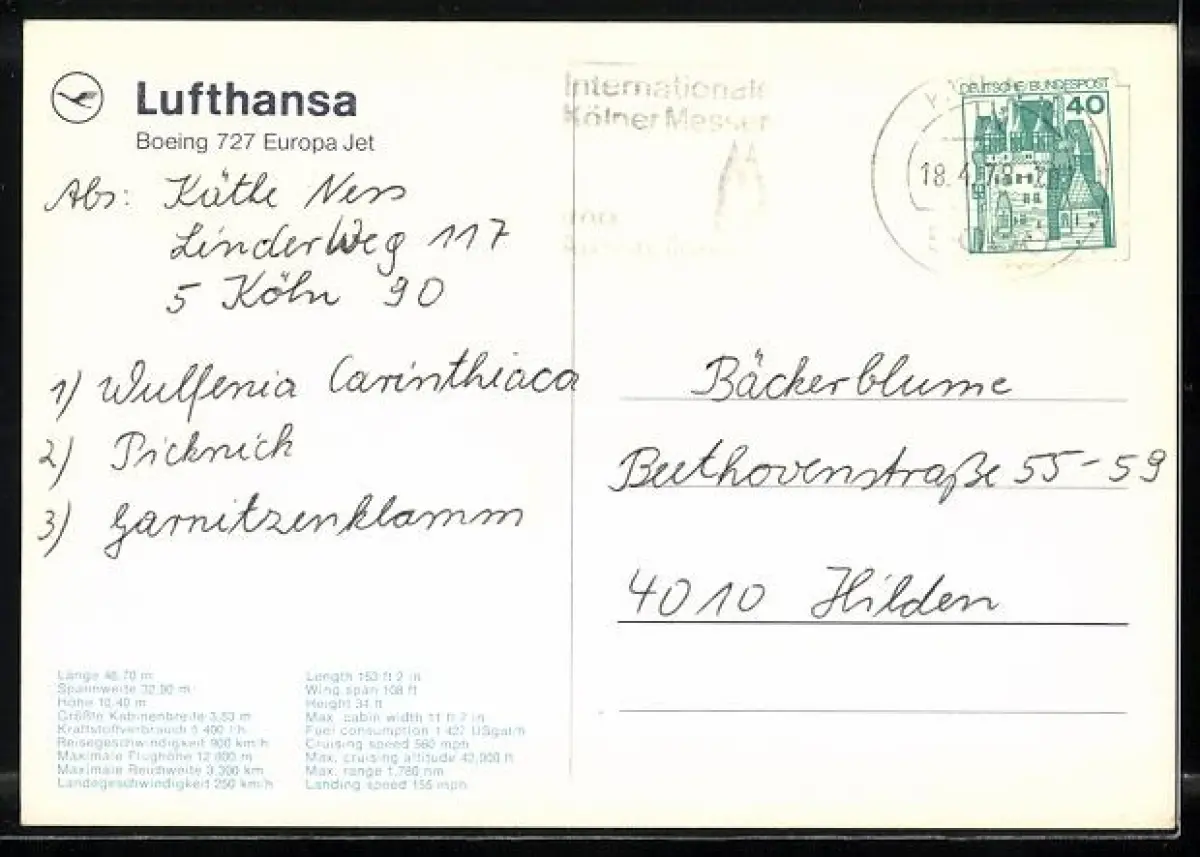 Lufthansa
Boeing 727 Europa Jet
Abs: Käthe Ness
Linder Weg 117
5 Köln 90
1) Wulfenia Carinthiaca
2) Picknick
3) Garnitzenklamm
Internationale
Kölner Messen
DEUTSCHE BUNDESPOST
40
18.4.79
Bäckerblume
Beethovenstraße 55-59
4010 Hilden
Länge 46,70 m
Spannweite 32,90 m
Höhe 10,40 m
Größte Kabinenbreite 3,53 m
Kraftstoffverbrauch 5 400 l/h
Reisegeschwindigkeit 900 km/h
Maximale Flughöhe 12 800 m
Maximale Reichweite 3,300 km
Landegeschwindigkeit 250 km/h
Length 153 ft 2 in
Wing span 108 ft
Height 34 ft
Max. cabin width 11 ft 7 in
Fuel consumption 1 427 USgal/h
Cruising speed 560 mph
Max. cruising altitude 42,000 ft
Max. range 1,780 nm
Landing speed 155 mph